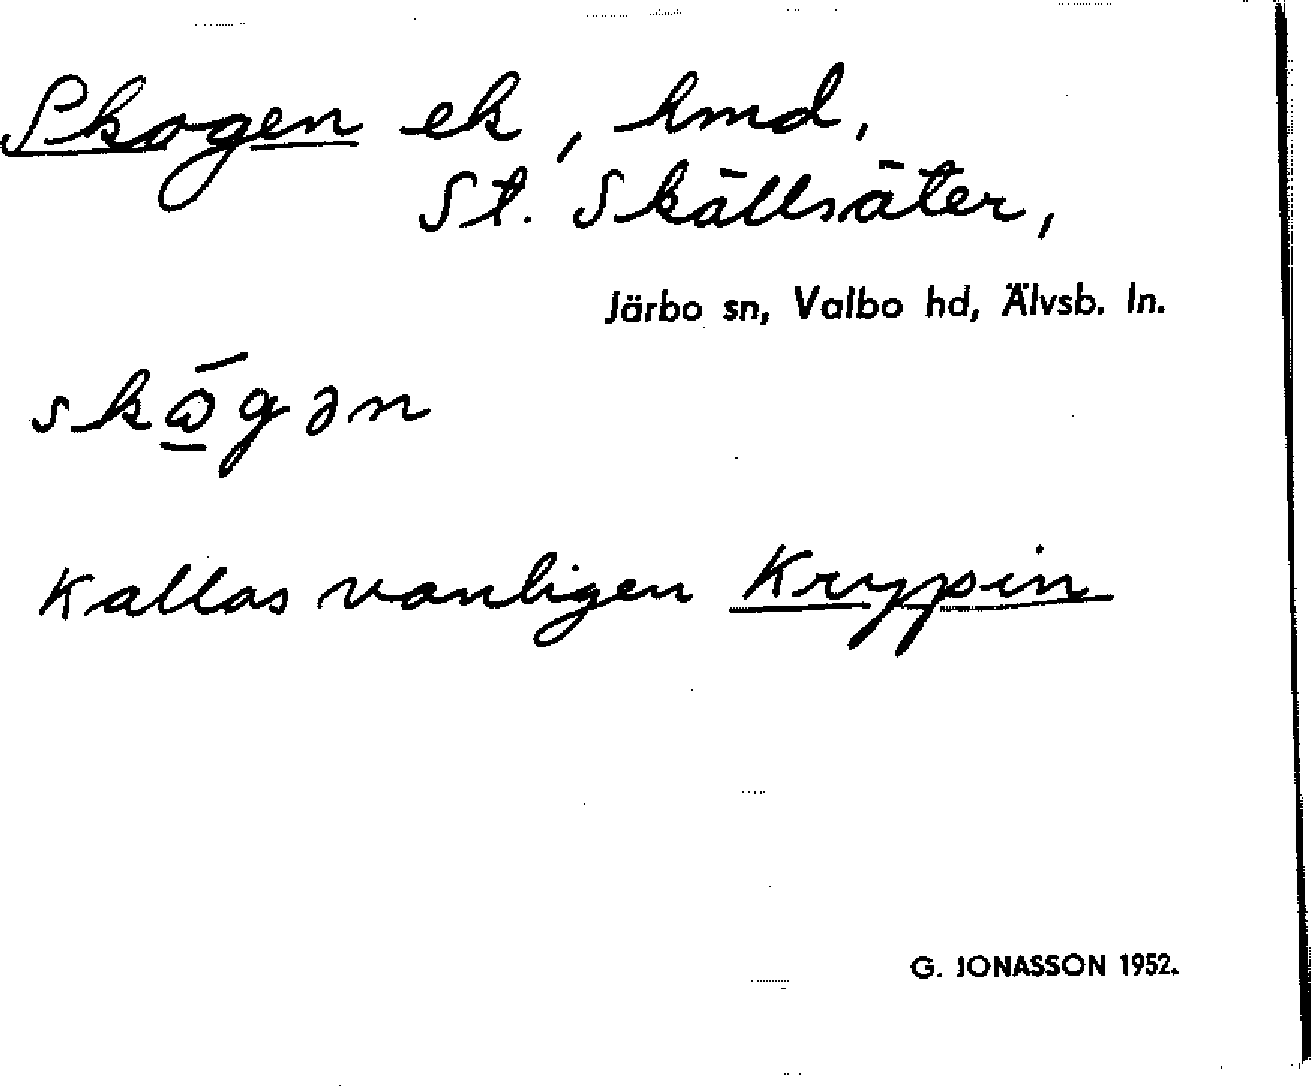 Skogen ek, hmd.
St. Skällsäter,
Järbo sn, Valbo hd, Älvsb. ln.
skώ̱gən
Kallas vanligen Kryppin
G. JONASSON 1952.